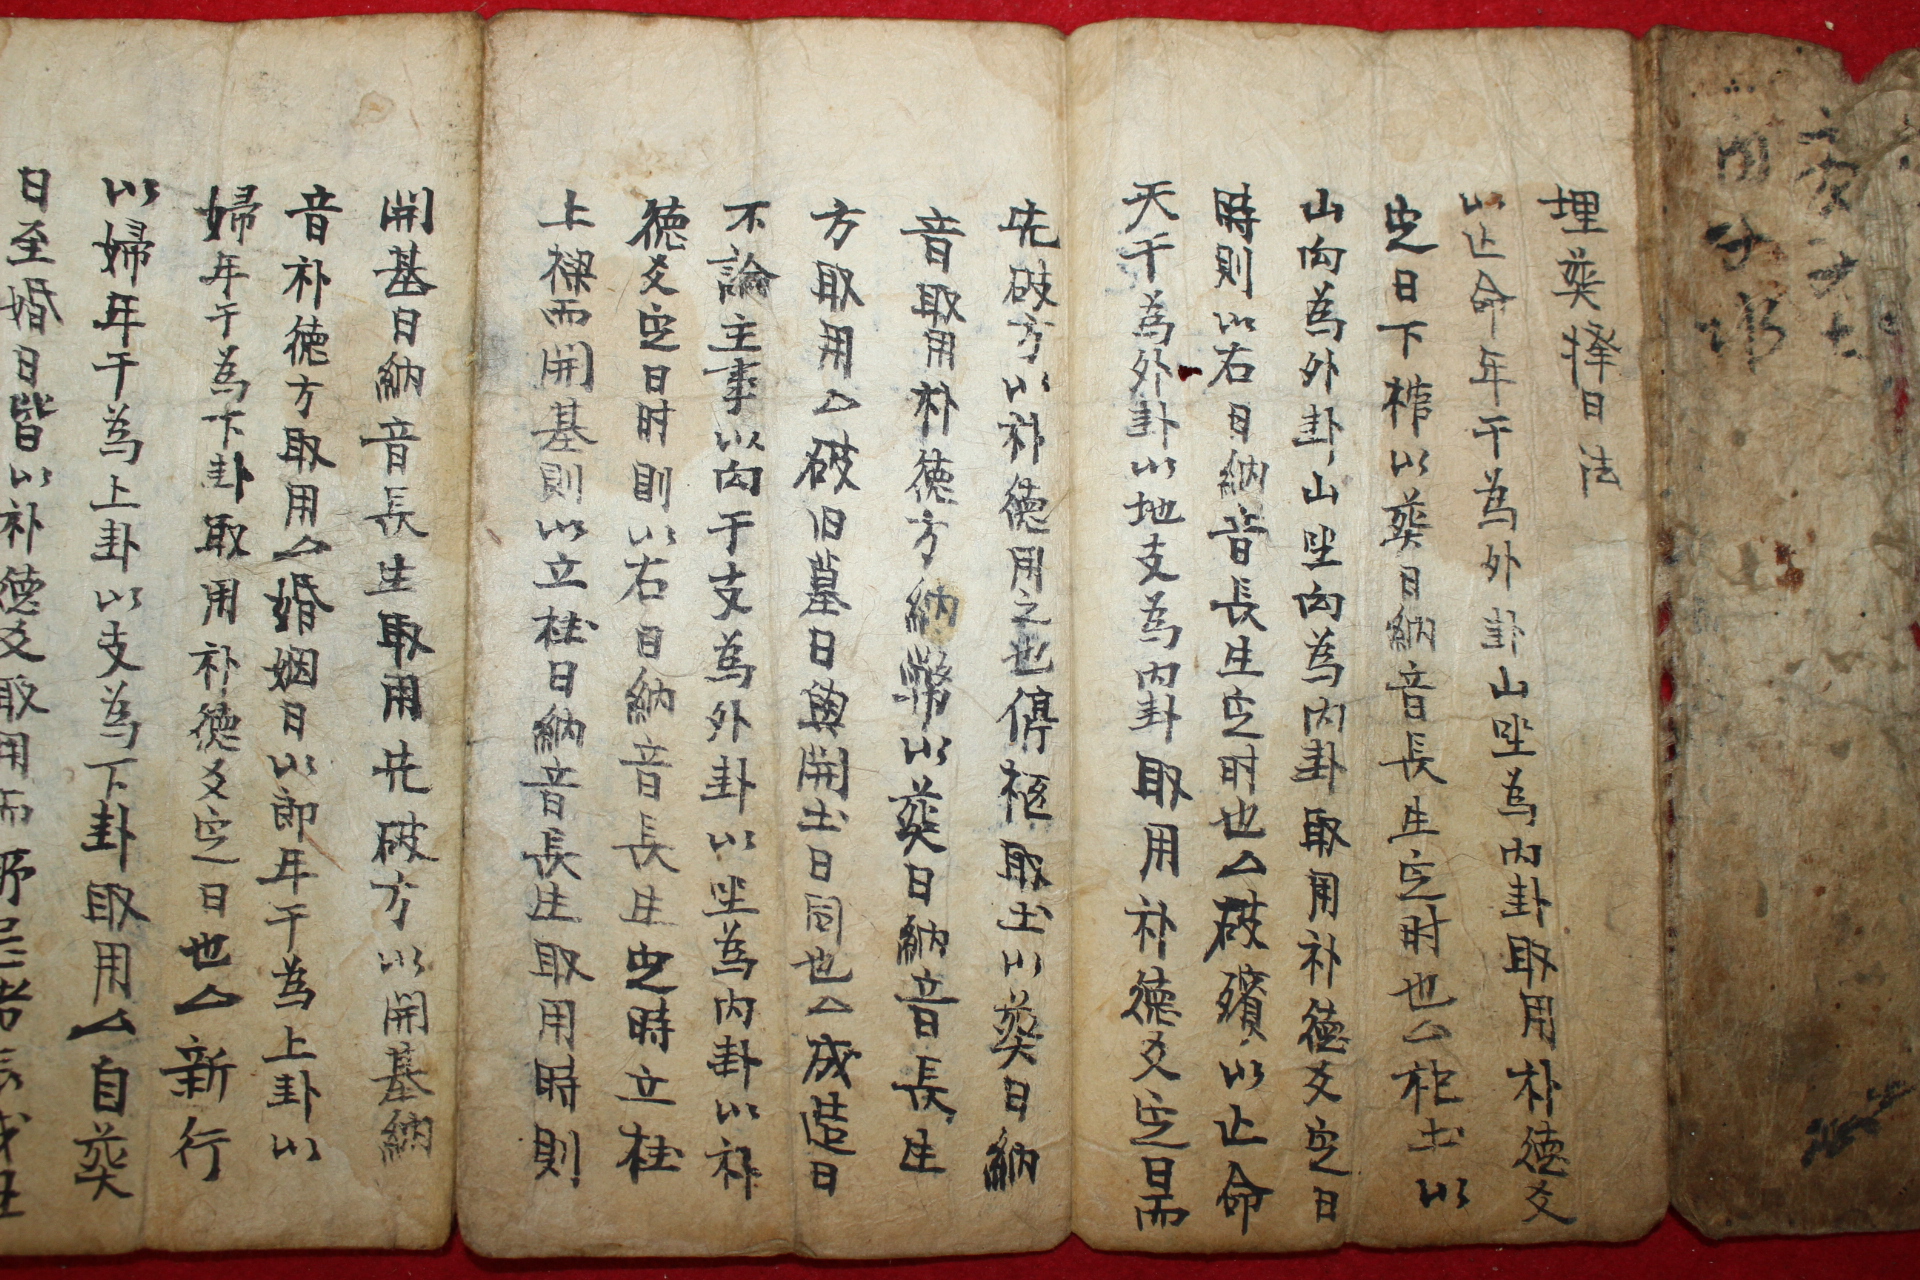 埋葬擇日法
以亡命年干為外卦山坐為內卦取用补德爻
定日下棺以葬日納音長生定时也△祀土以
山向為外卦山坐向為內卦取用补德爻定日
時則以右日納音長生定时也△破殯以亡命
天干為外卦以地支為內卦取用补德爻定日而
先破方以补德用之也停柩取土以葬日納
音取用补德方納幣以葬日納音長生
方取用△破旧墓日與開土日同也△成造日
不論主事以向干支為外卦以坐為內卦以补
德爻定日时則以右日納音長生定時立柱
上樑而開基則以立柱日納音長生取用時則
開基日納音長生取用先破方以開基納
音补德方取用△婚姻日以郎年干為上卦以
婦年干為下卦取用补德爻定日也△新行
以婦年干為上卦以支為下卦取用△自葬
日至婚日皆以补德爻取用而